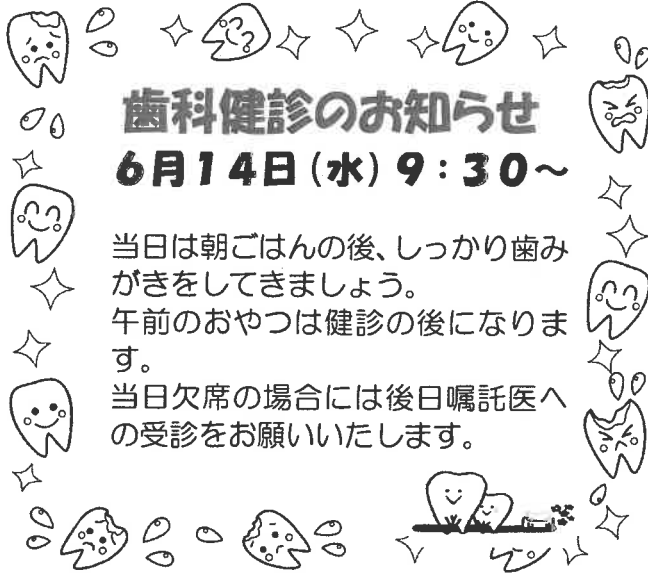 歯科健診のお知らせ
6月14日(水)9:30~
当日は朝ごはんの後、しっかり歯み
がきをしてきましょう。
午前のおやつは健診の後になりま
す。
当日欠席の場合には後日嘱託医へ
の受診をお願いいたします。